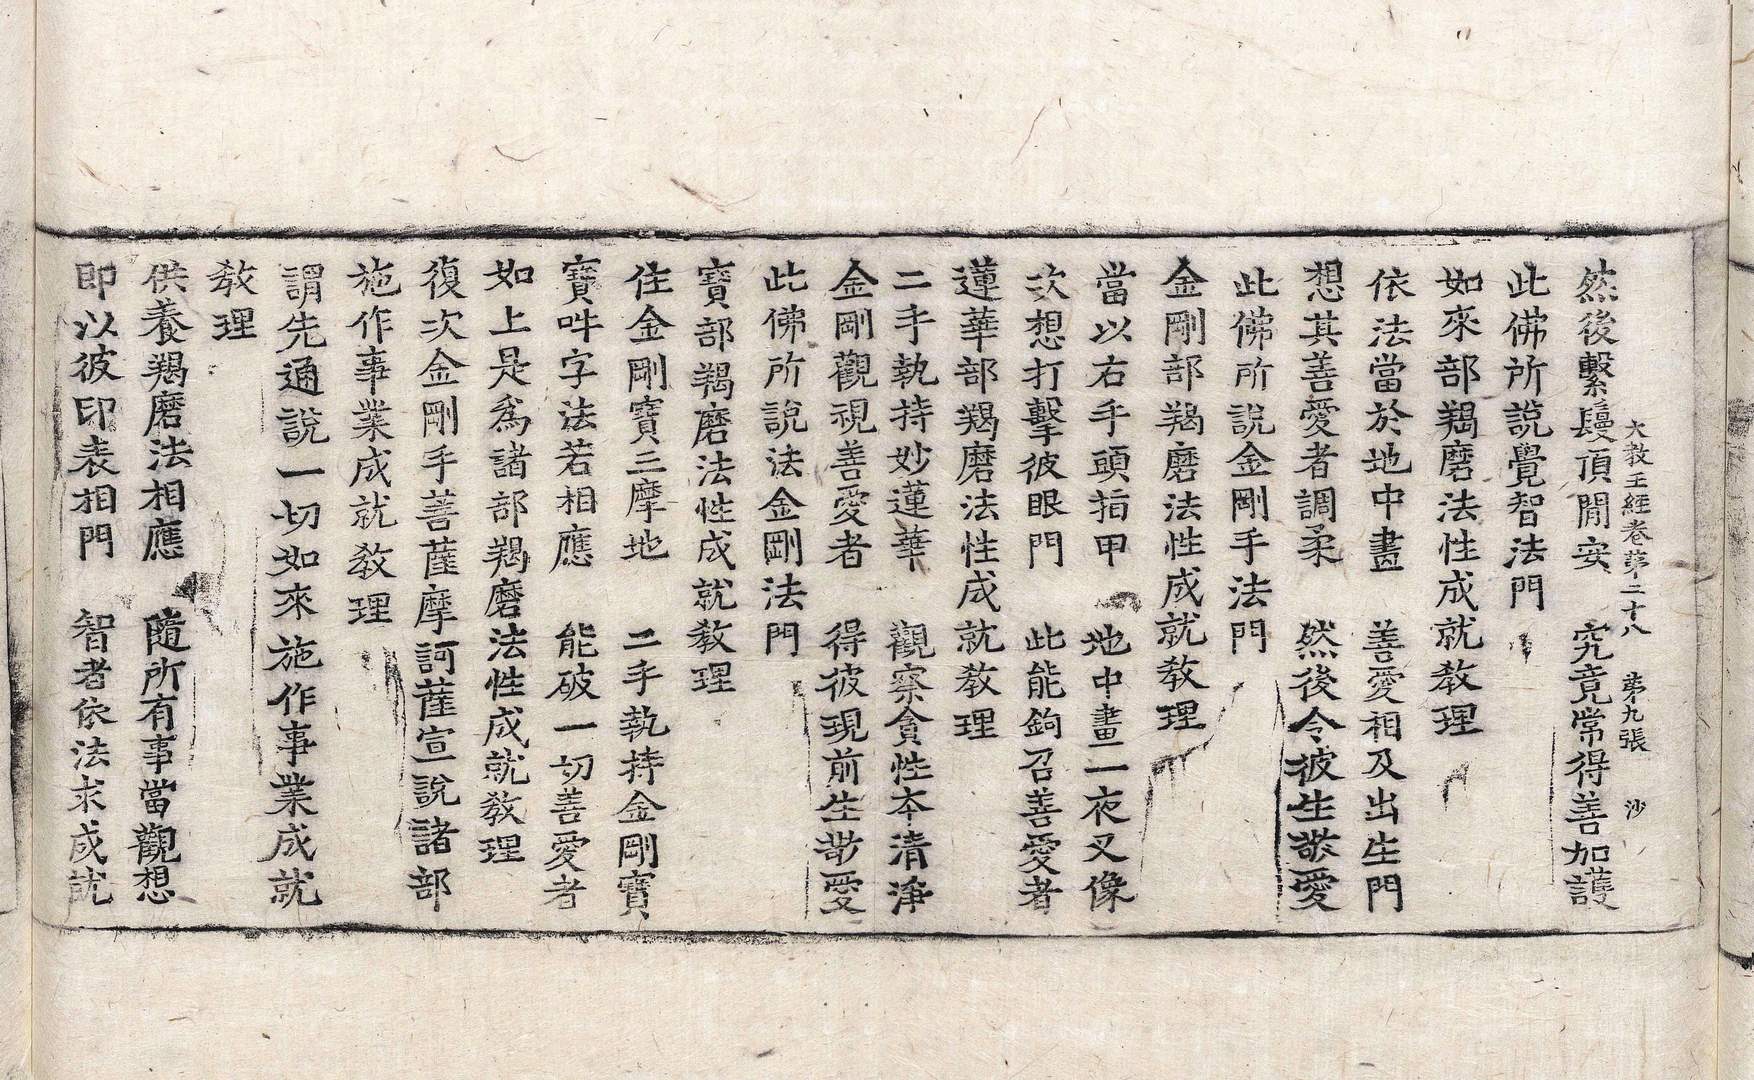 大教王經卷第二十八　第九張　沙
然後繫鬘頂閒安　究竟常得善加護
此佛所說覺智法門
如來部羯磨法性成就教理
依法當於地中畫　善愛相及出生門
想其善愛者調柔　然後令彼生敬愛
此佛所說金剛手法門
金剛部羯磨法性成就教理
當以右手頭指甲　地中畫一夜叉像
次想打擊彼眼門　此能鉤召善愛者
蓮華部羯磨法性成就教理
二手執持妙蓮華　觀察貪性本清淨
金剛觀視善愛者　得彼現前生敬愛
此佛所說法金剛法門
寶部羯磨法性成就教理
住金剛寶三摩地　二手執持金剛寶
寶吽字法若相應　能破一切善愛者
如上是爲諸部羯磨法性成就教理
復次金剛手菩薩摩訶薩宣說諸部
施作事業成就教理
謂先通說一切如來施作事業成就
教理
供養羯磨法相應　隨所有事當觀想
即以彼印表相門　智者依法求成就